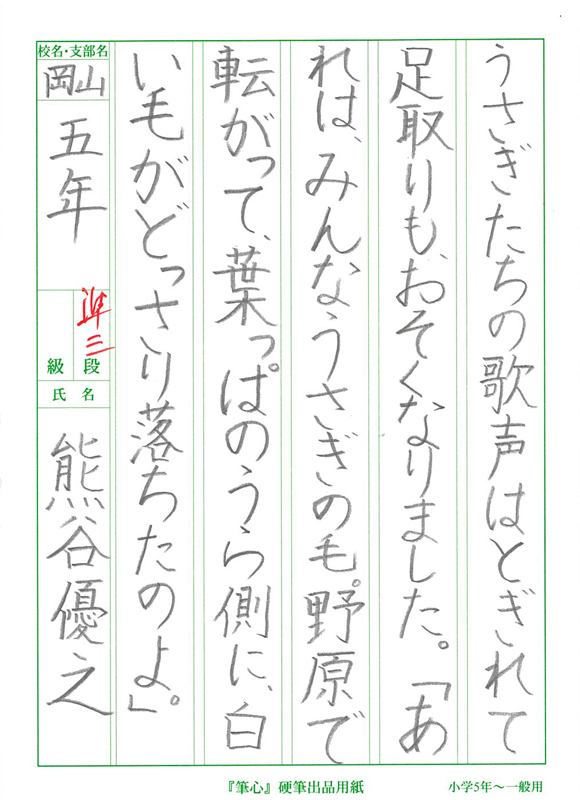 うさぎたちの歌声はとぎれて
足取りも、おそくなりました。「あ
れは、みんなうさぎの毛。野原で
転がって、葉っぱのうら側に、白
い毛がどっさり落ちたのよ」。
校名・支部名
岡山
五年
準三
段
級
氏名
熊谷優之
『筆心』硬筆出品用紙
小学5年～一般用